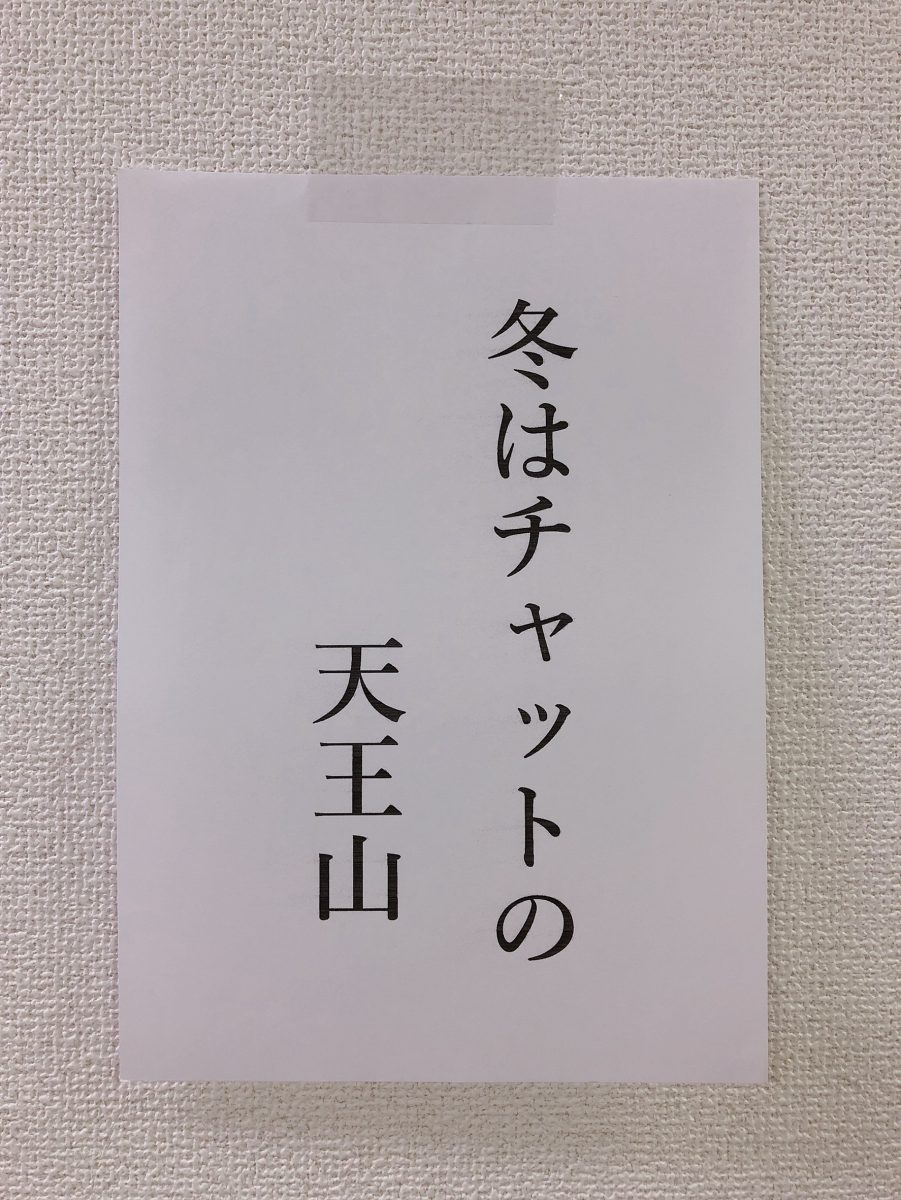 冬はチャットの
天王山